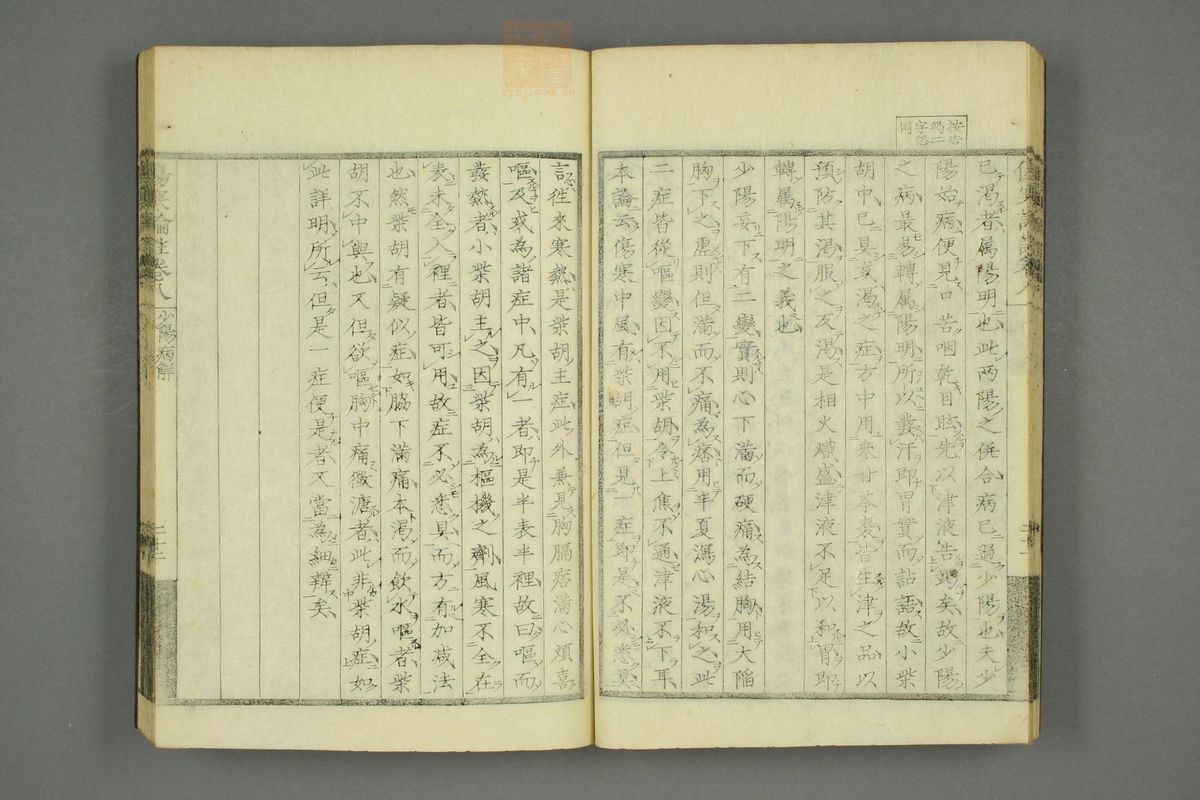 已渴者屬陽明也此兩陽之併合病已過少陽也夫少
陽始病便見口苦咽乾目眩先以津液告竭矣故少陽
之病最易轉属陽明所以發汗即胃實而譫語故小柴
胡中已具或渴之症方中用參甘苓棗皆生津之品以
預防其渴服之反渴是相火熾盛津液不足以和胃即
轉属陽明之義也
少陽妄下有二變實則心下滿而硬痛為結胸用大陷
胸下之虛則但滿而不痛為痞用半夏瀉心湯和之此
二症皆從嘔變因不用柴胡令上焦不通津液不下耳
本論云傷寒中風有柴胡症但見一症即是不必悉具
按告
竭二
字恐
倒
言徃來寒熱是柴胡主症此外兼見胸膈痞滿心煩喜
嘔及或為諸症中凡有一者即是半表半裡故曰嘔而
發熱者小柴胡主之因柴胡為樞機之劑風寒不全在
表未全入裡者皆可用故症不必悉具而方有加减法
也然柴胡有疑似症如脇下滿痛本渴而飲水嘔者柴
胡不中與也又但欲嘔胸中痛微溏者此非柴胡症如
此詳明所云但是一症便是者又當為細辨矣
傷寒論註卷八
少陽病解
二十二
zycj.com.cn